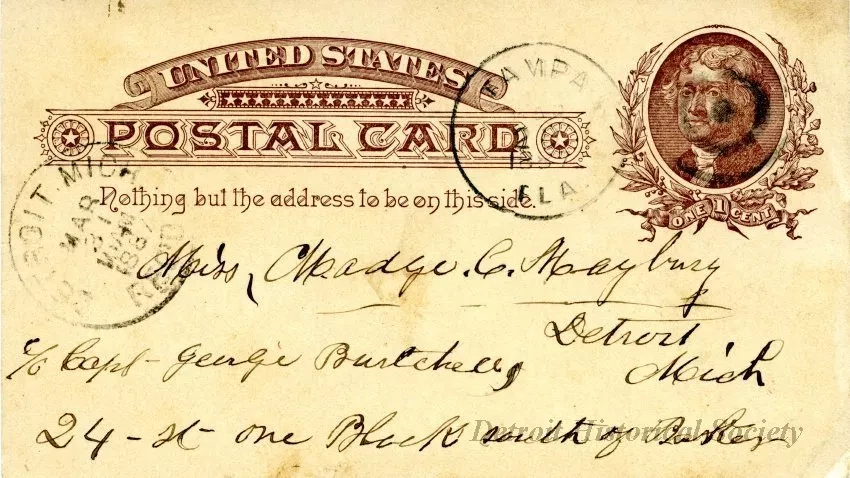 UNITED STATES
POSTAL CARD
Nothing but the address to be on this side.
ONE 1 CENT
TAMPA
FLA.
DETROIT MICH
MAR
21
1887
REC'D
Miss, Madge. C. Maybury
Detroit
Mich
c/o Capt - George Burtchell,
24 - st - one Block south of
Detroit Historical Society